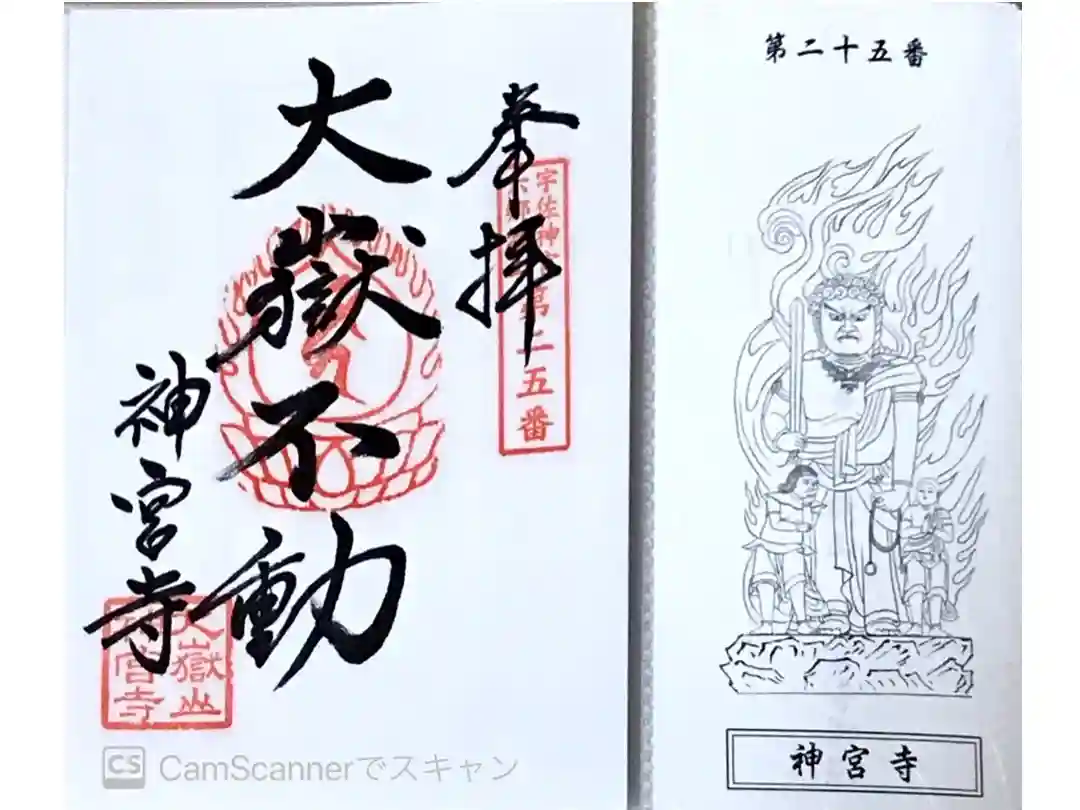 奉拝
宇佐神
第二五番
大嶽不動
神宮寺
大嶽山
神宮寺
CS CamScannerでスキャン
第二十五番
神宮寺